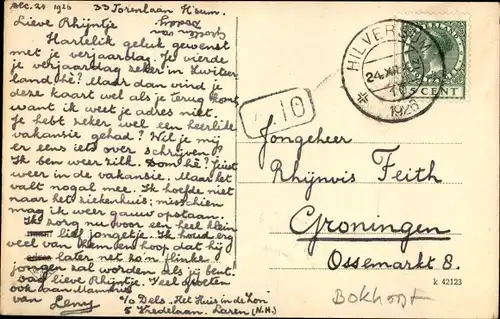 Dec. 28 1926 33 Torenlaan H'sum.
Lieve Rhijntje
Hartelijk geluk gewenst
met je verjaardag. Je vierde
je verjaardag zeker in Zwitser
land hè? Maar dan vind je
deze kaart wel als je terug komt
want ik weet je adres niet.
Je hebt zeker wel een heerlijke
vakansie gehad? Wil je mij
er eens iets over schrijven?
Ik ben weer ziek. Dom hè? Juist
weer in de vakansie. Maar het
valt nogal mee. Ik hoefde niet
naar het ziekenhuis; misschien
mag ik weer gauw opstaan.
Ik zorg nu voor een heel klein
lief jongetje. Ik houd erg
veel van hem en hoop dat hij
later net zo'n flinke
jongen zal worden als jij bent.
Dag lieve Rhijntje. Veel groeten
ook aan Mammie
van Leny
c/o Dels. Het Huis in de Zon
5 Vredelaan. Laren (N.H.)
HILVERSUM
24.XII
1926
5 CENT
10
Jongeheer
Rhijnvis Feith
Groningen
Ossemarkt 8.
k 42123
Bokhorst